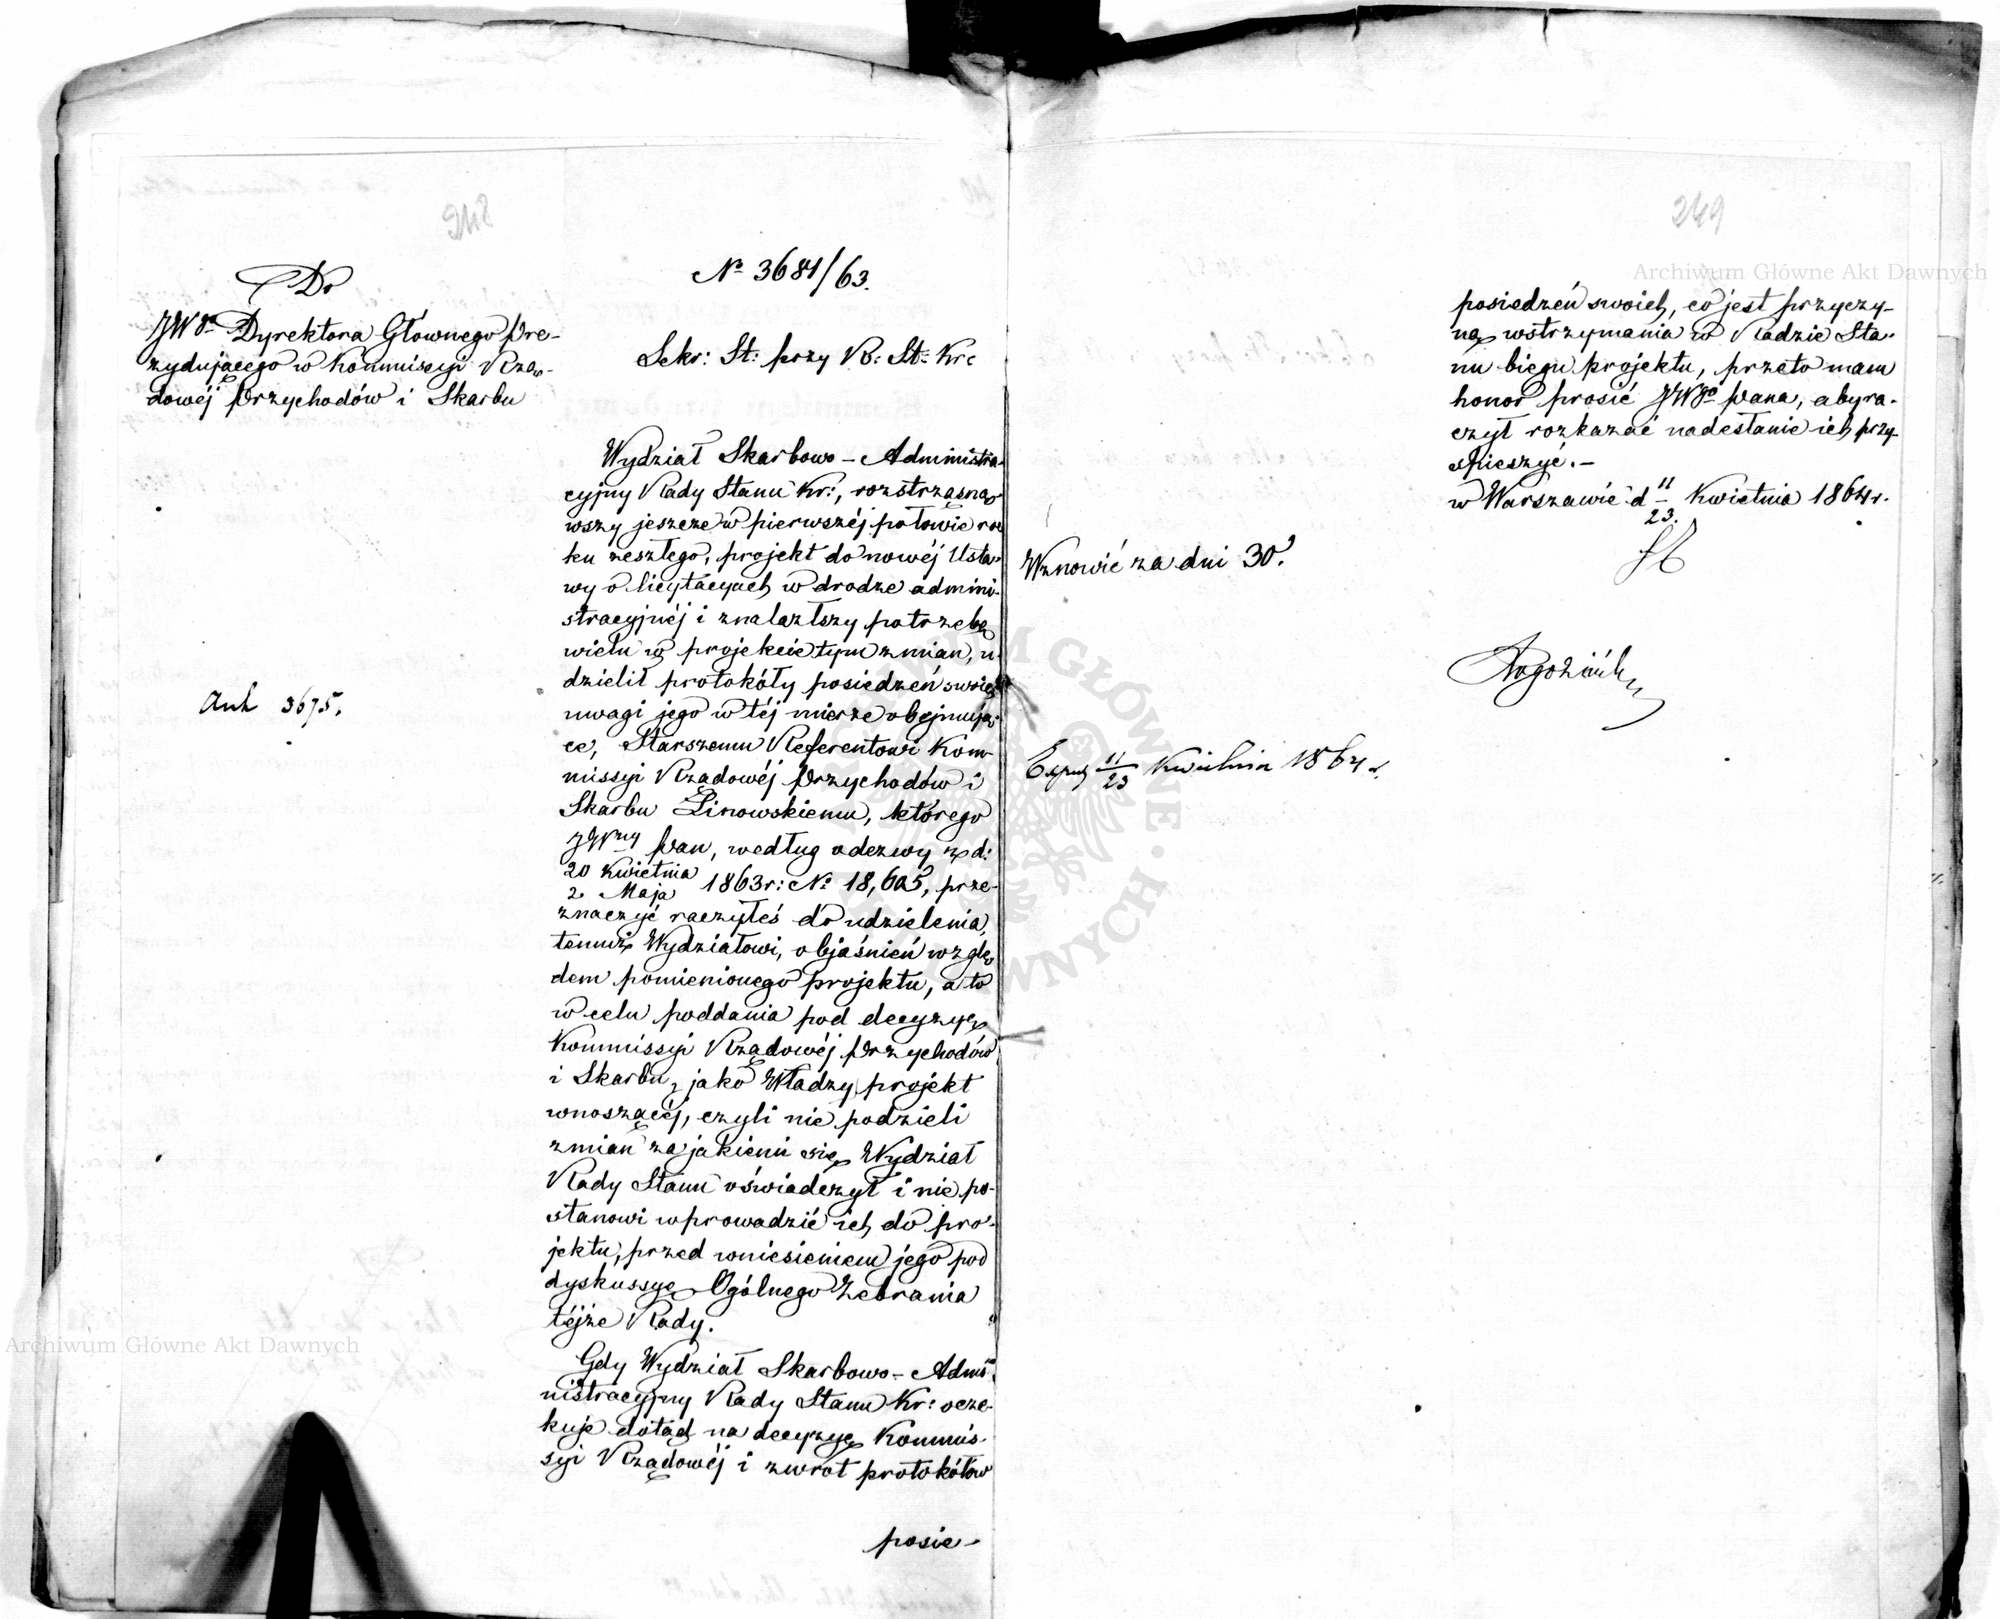 248
Do
JWgo Dyrektora Głownego Pre-
zydującego w Kommissyi Rzą-
dowéj Przychodów i Skarbu
Anh 3675.
No 3681/63.
Sekr: St: przy R: St: Kr:
Wydział Skarbowo-Administra-
cyjny Rady Stanu Kr:, roztrząsną-
wszy jeszcze w pierwszéj połowie ro-
ku zeszłego, projekt do nowéj Usta-
wy o licytacyach w drodze admini-
stracyjnéj i znalazłszy potrzebę
wielu w projekcie tym zmian, u-
dzielił protokóły posiedzeń swoich
uwagi jego w téj mierze obejmują-
ce, Starszemu Referentowi Kom-
missyi Rządowéj Przychodów i
Skarbu Linowskiemu, którego
JWny Pan, według odezwy z d:
20 Kwietnia
2 Maja 1863 r: No 18,605, prze-
znaczyć raczyłeś do udzielenia,
temuż Wydziałowi, objaśnień wzglę-
dem pomienionego projektu, a to
w celu poddania pod decyzyę
Kommissyi Rządowéj Przychodów
i Skarbu, jako Władzy projekt
wnoszącéj, czyli nie podzieli
zmian za jakiemi się Wydział
Rady Stanu oświadczył i nie po-
stanowi wprowadzić ich do pro-
jektu, przed wniesieniem jego pod
dyskussyę Ogólnego Zebrania
téjże Rady.
Gdy Wydział Skarbowo-Admi-
nistracyjny Rady Stanu Kr: ocze-
kuje dotąd na decyzyę Kommis-
syi Rządowéj i zwrot protokółów
posie-
249
posiedzeń swoich, co jest przyczy-
ną wstrzymania w Radzie Sta-
nu biegu projektu, przeto mam
honor prosić JWgo Pana, aby ra-
czył rozkazać nadesłanie ich przy-
spieszyć.-
w Warszawie d 11/23. Kwietnia 1864 r.
Wznowić za dni 30.
Exped 11/23 Kwietnia 1864 r.
Archiwum Główne Akt Dawnych
Archiwum Główne Akt Dawnych